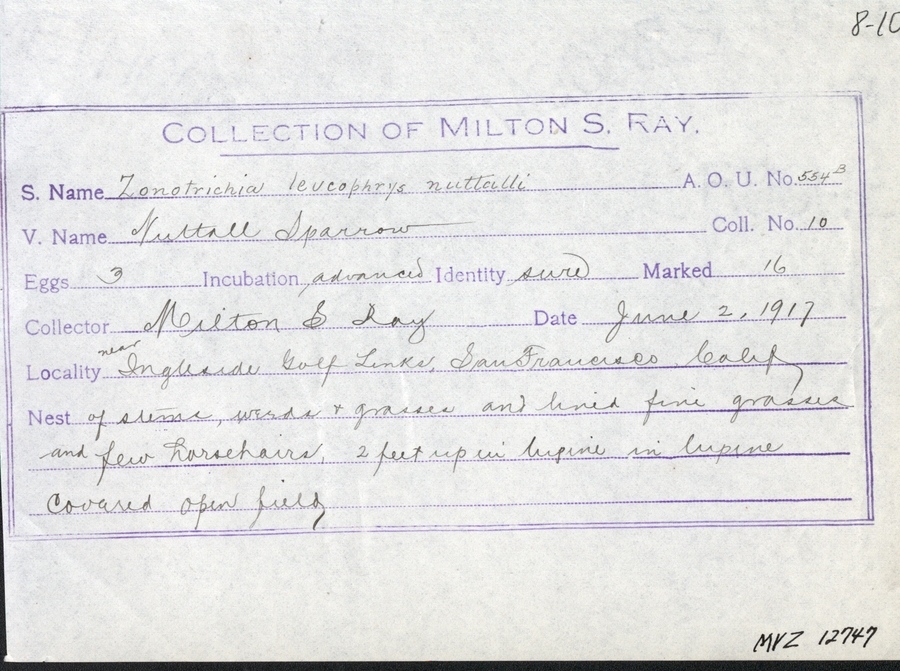 8-10
COLLECTION OF MILTON S. RAY.
S. Name Zonotrichia leucophrys nuttalli A. O. U. No. 554B
V. Name Nuttall Sparrow Coll. No. 10
Eggs 3 Incubation advanced Identity sure Marked 16
Collector Milton S Ray Date June 2, 1917
Locality near Ingleside Golf Links, San Francisco Calif
Nest of stems, weeds + grasses and lined fine grasses
and few horsehairs, 2 feet up in lupine in lupine
covered open field
MVZ 12747